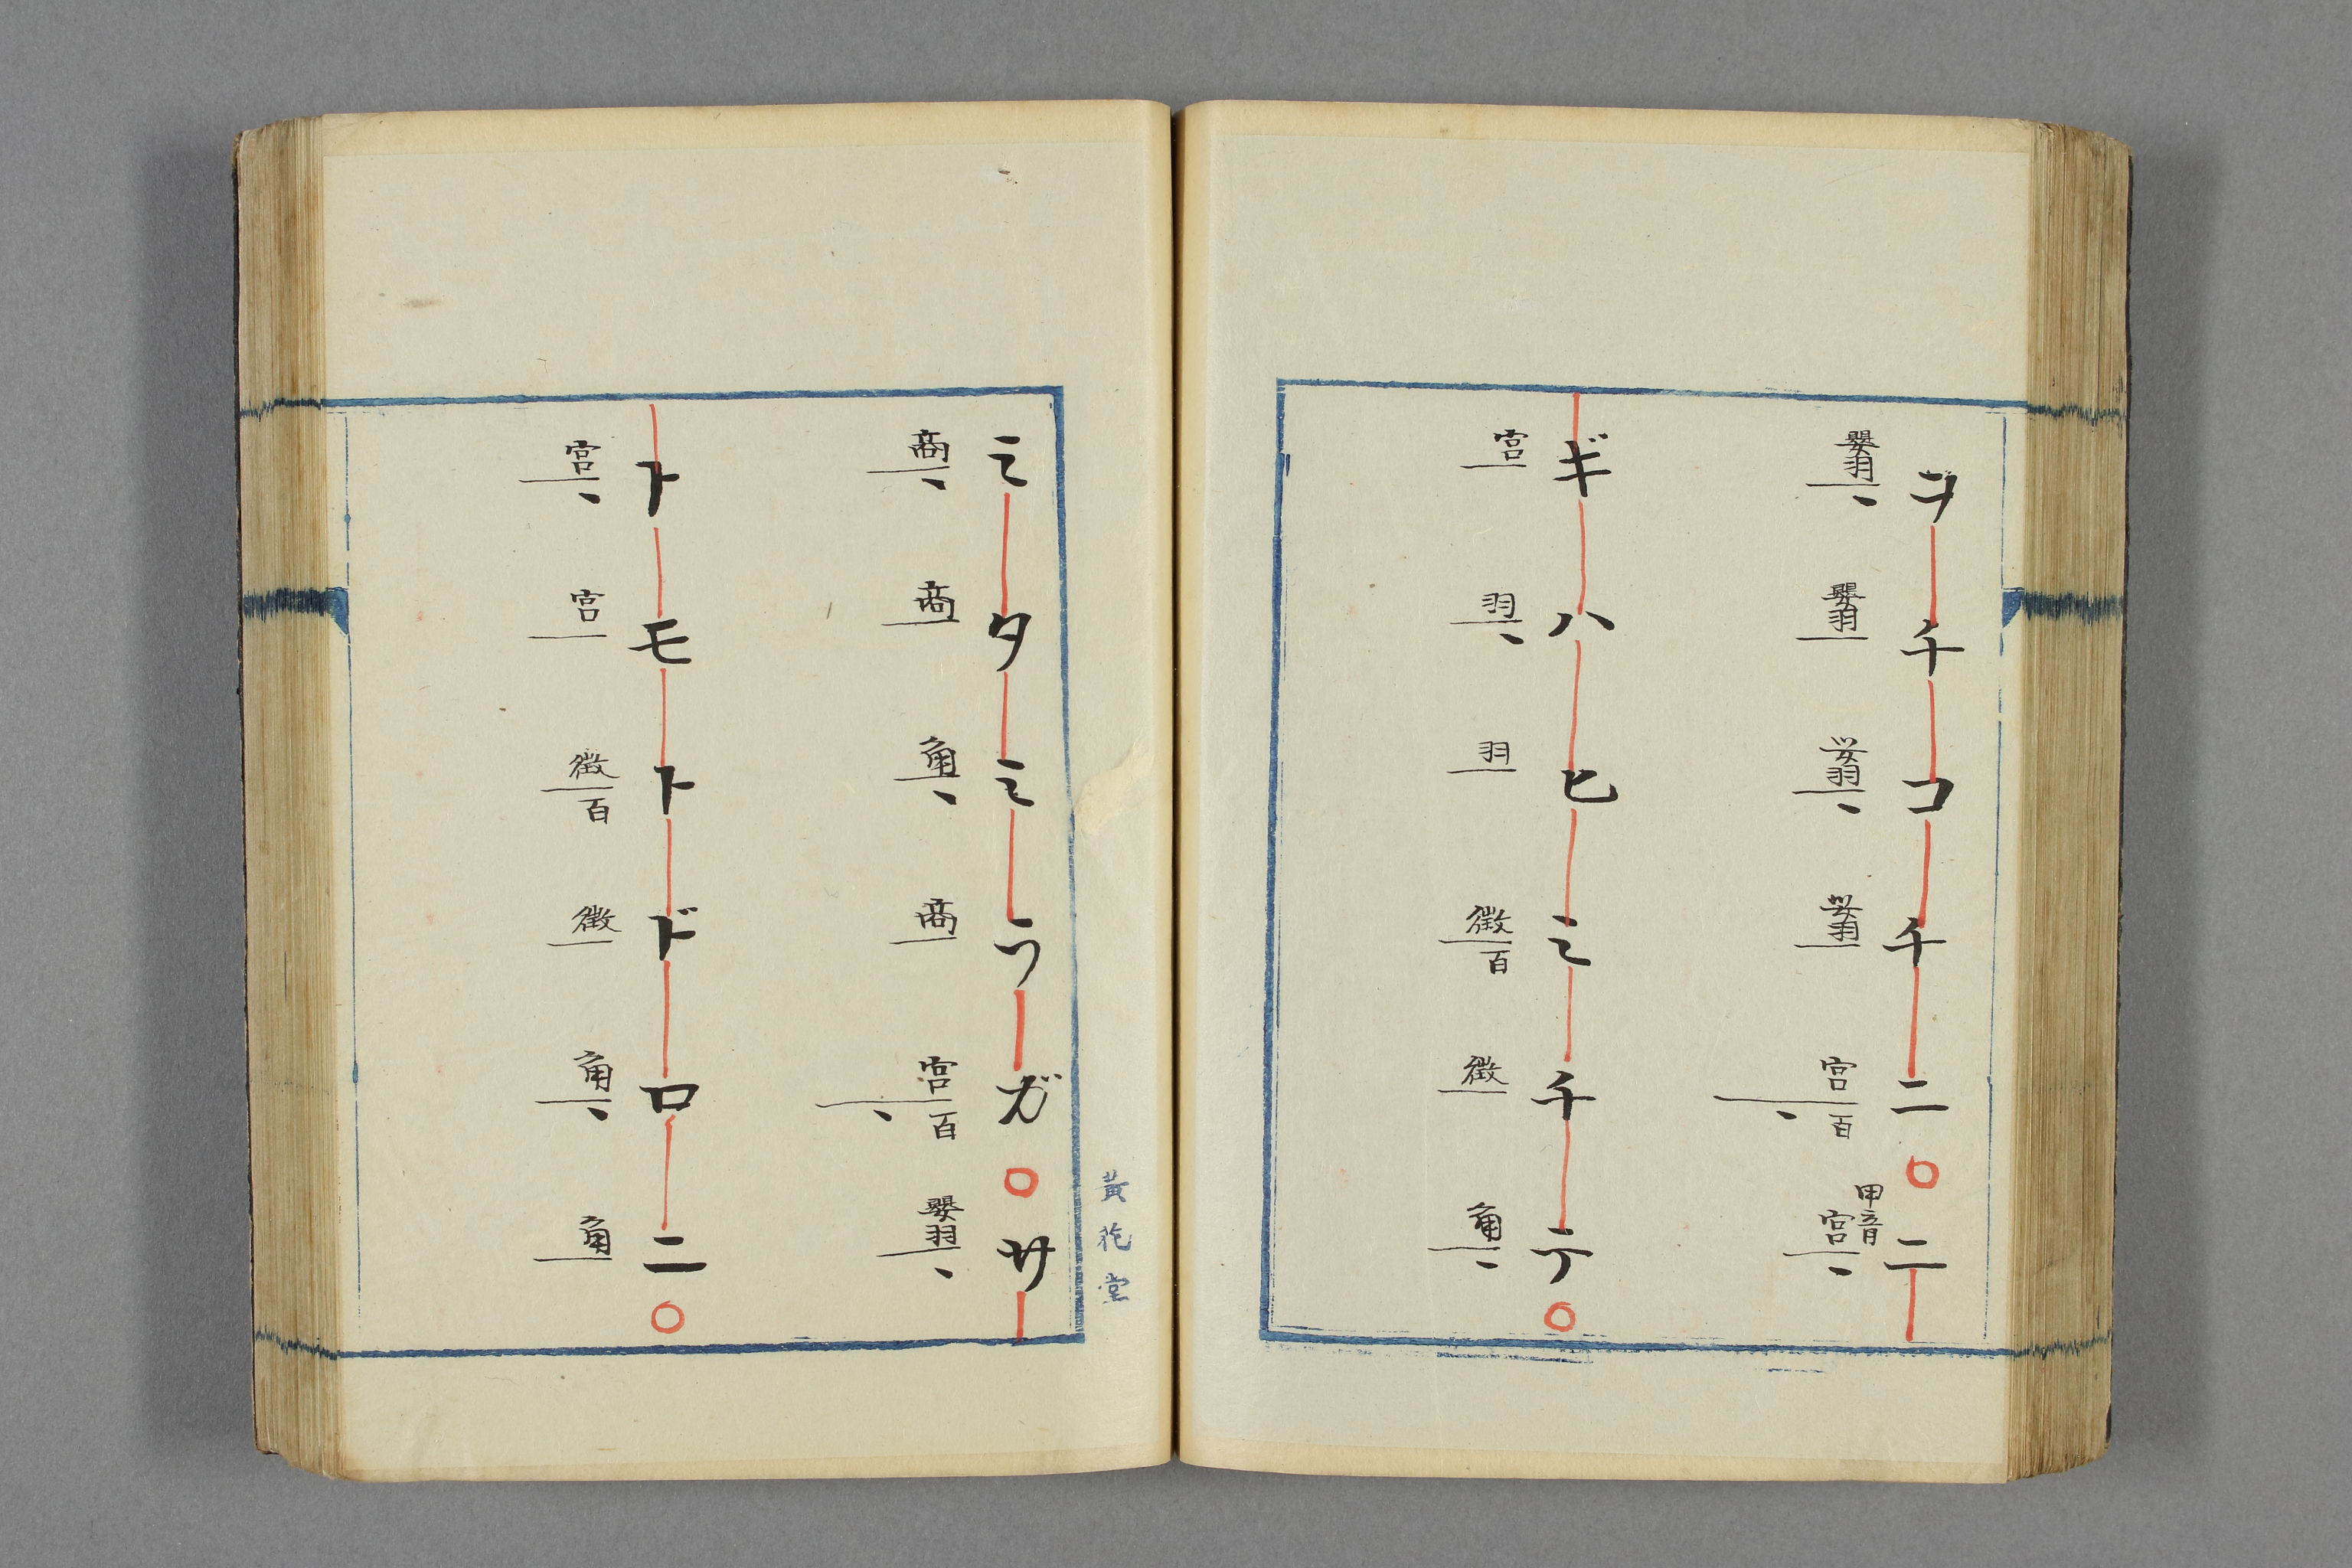 ヲチコチニ○ニ
嬰羽、 嬰羽 嬰羽、 嬰羽 宮百、 甲音 宮、
ギハヒミチテ○
宮 羽、 羽 徴百 徴 角、
黄花堂
ミタミラガ○サ
商、 商 角、 商 宮百、 嬰羽、
トモトドロニ○
宮、 宮 徴百 徴 角、 角